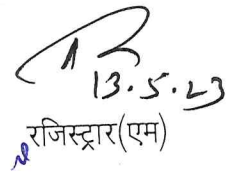 13.5.23
रजिस्ट्रार(एम)